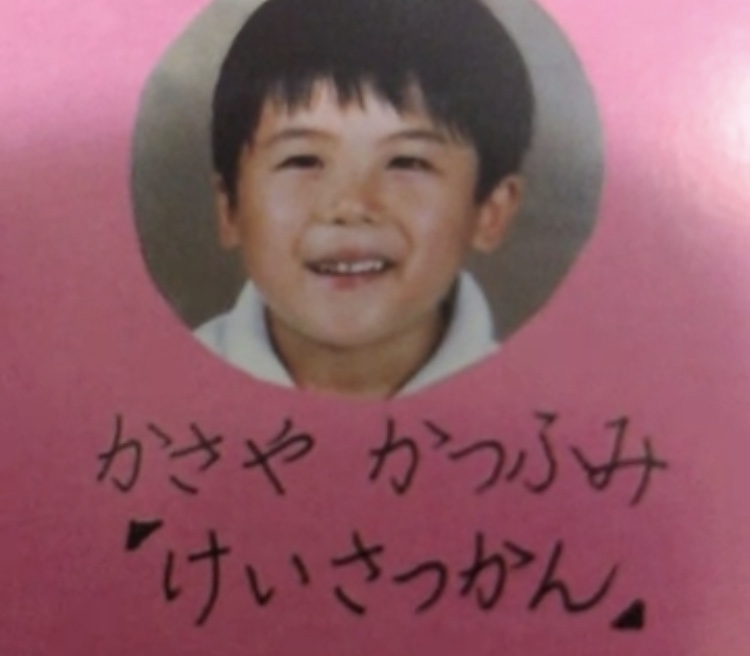 かさや かつふみ
「けいさつかん」